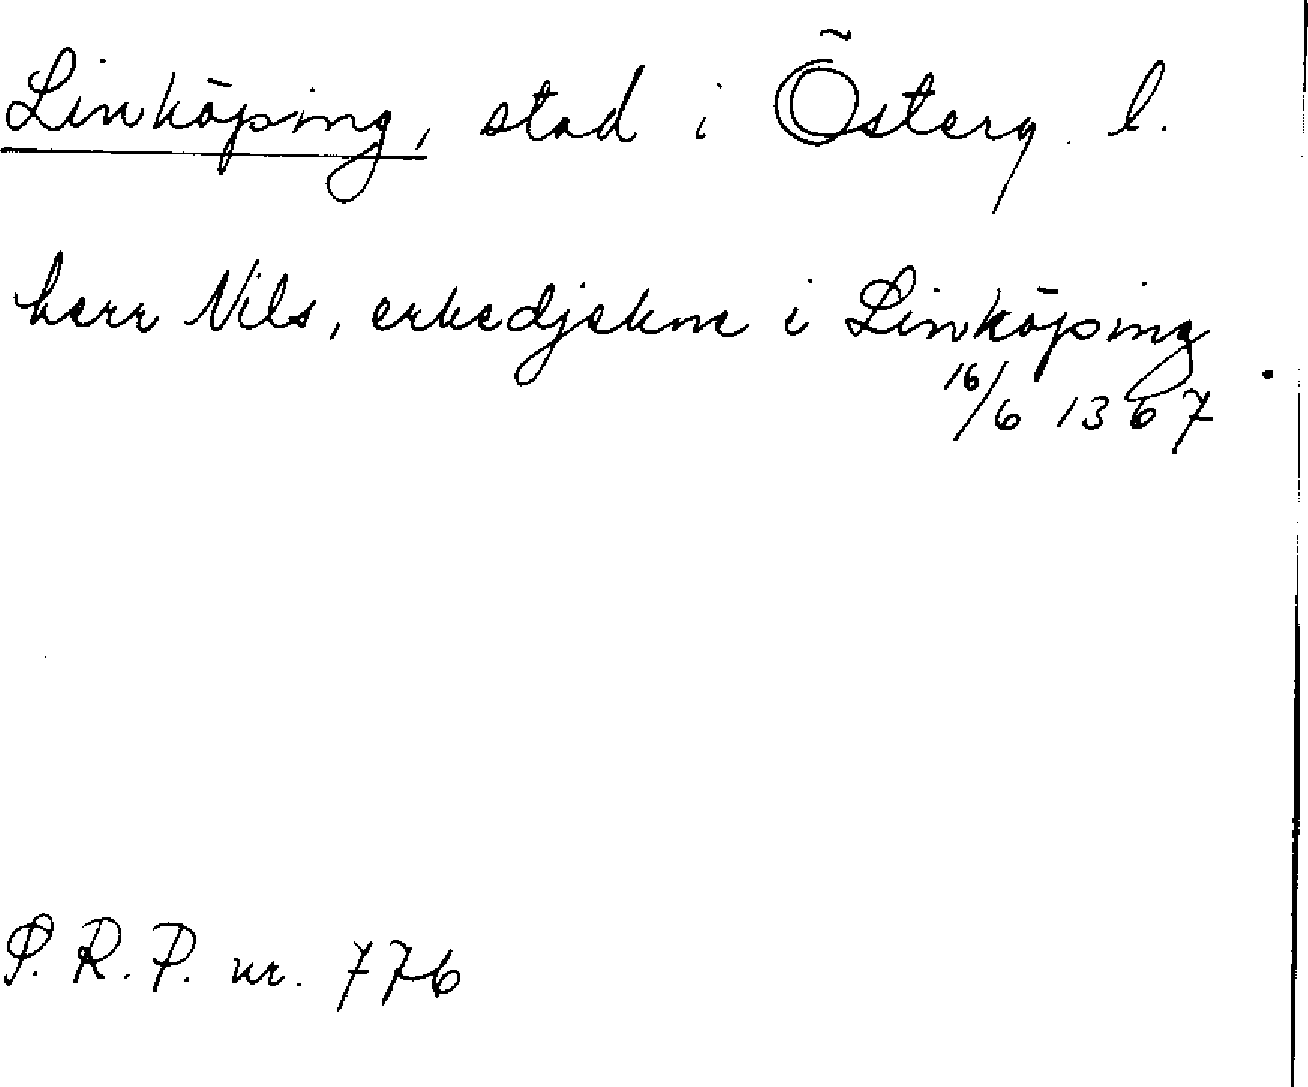 Linköping, stad i Österg. l.
herr Nils, erkedjekne i Linköping
16/6 1367.
S. R. P. nr. 776